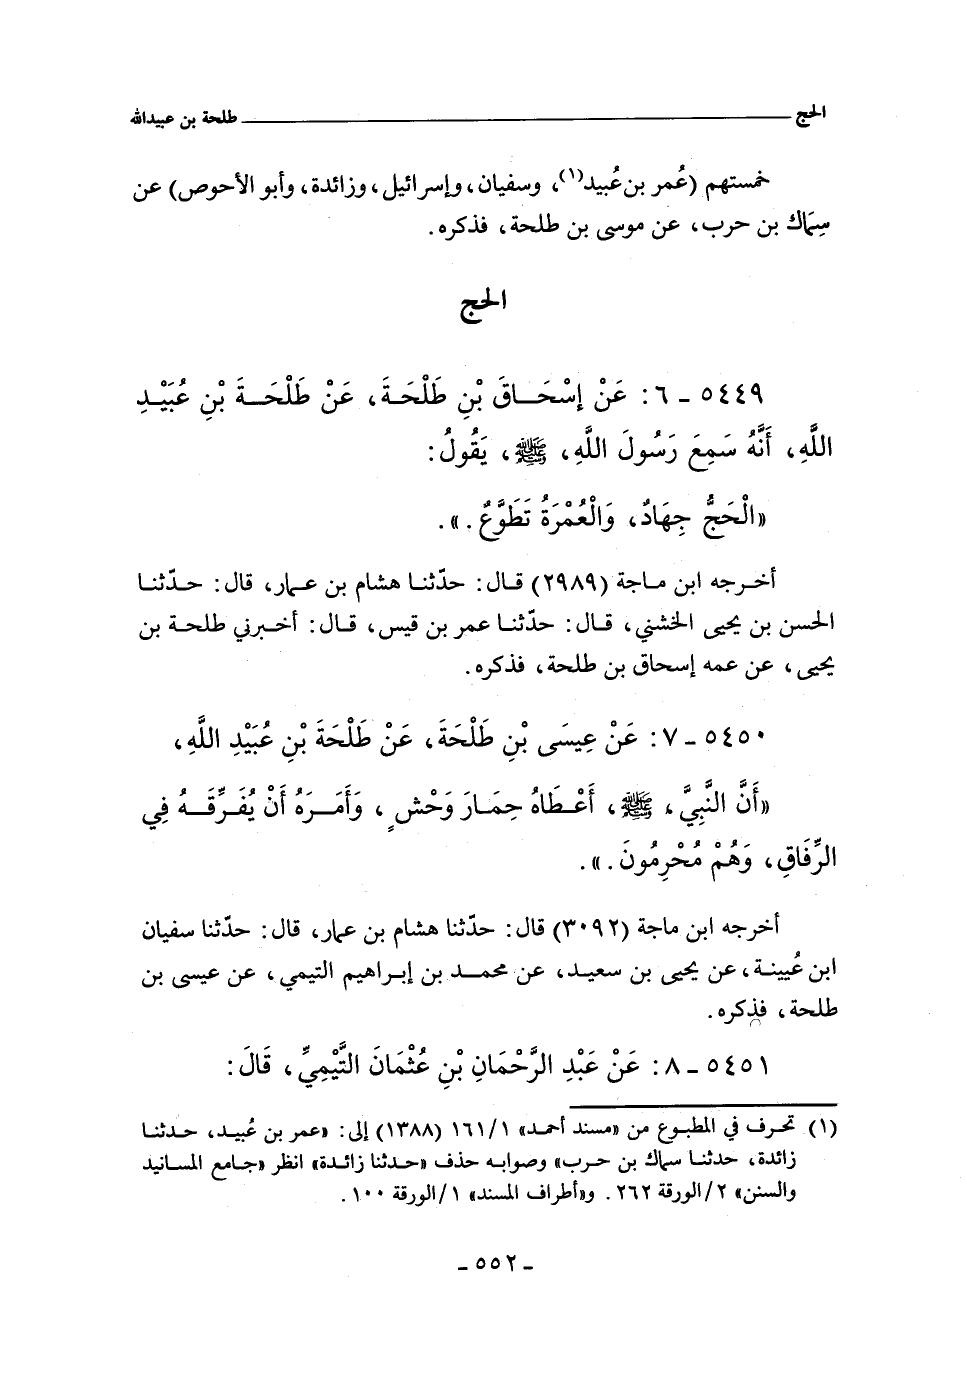 الحج ــــــــــ طلحة بن عبيدالله
خمستهم (عُمر بن عُبيد(١)، وسفيان، وإسرائيل، وزائدة، وأبو الأحوص) عن
سِمَاك بن حرب، عن موسى بن طلحة، فذكره.
الحج
٥٤٤٩ - ٦: عَنْ إِسْحَاقَ بْنِ طَلْحَةَ، عَنْ طَلْحَةَ بْنِ عُبَيْدِ
اللَّهِ، أَنَّهُ سَمِعَ رَسُولَ اللَّهِ، ﷺ، يَقُولُ:
«الْحَجُّ جِهَادٌ، وَالْعُمْرَةُ تَطَوَّعٌ.».
أخرجه ابن ماجة (٢٩٨٩) قال: حدّثنا هشام بن عمار، قال: حدّثنا
الحسن بن يحيى الخشني، قال: حدّثنا عمر بن قيس، قال: أخبرني طلحة بن
يحيى، عن عمه إسحاق بن طلحة، فذكره.
٥٤٥٠ - ٧: عَنْ عِيسَى بْنِ طَلْحَةَ، عَنْ طَلْحَةَ بْنِ عُبَيْدِ اللَّهِ،
«أَنَّ النَّبِيَّ، ﷺ، أَعْطَاهُ حِمَارَ وَحْشٍ، وَأَمَرَهُ أَنْ يُفَرِّقَهُ فِي
الرِّفَاقِ، وَهُمْ مُحْرِمُونَ.».
أخرجه ابن ماجة (٣٠٩٢) قال: حدّثنا هشام بن عمار، قال: حدّثنا سفيان
ابن عُيينة، عن يحيى بن سعيد، عن محمد بن إبراهيم التيمي، عن عيسى بن
طلحة، فذكره.
٥٤٥١ - ٨: عَنْ عَبْدِ الرَّحْمَانِ بْنِ عُثْمَانَ التَّيْمِيِّ، قَالَ:
(١) تحرف في المطبوع من «مسند أحمد» ١٦١/١ (١٣٨٨) إلى: «عمر بن عُبيد، حدثنا
زائدة، حدثنا سماك بن حرب» وصوابه حذف «حدثنا زائدة» انظر «جامع المسانيد
والسنن» ٢/الورقة ٢٦٢. و«أطراف المسند» ١/الورقة ١٠٠.
- ٥٥٢ -